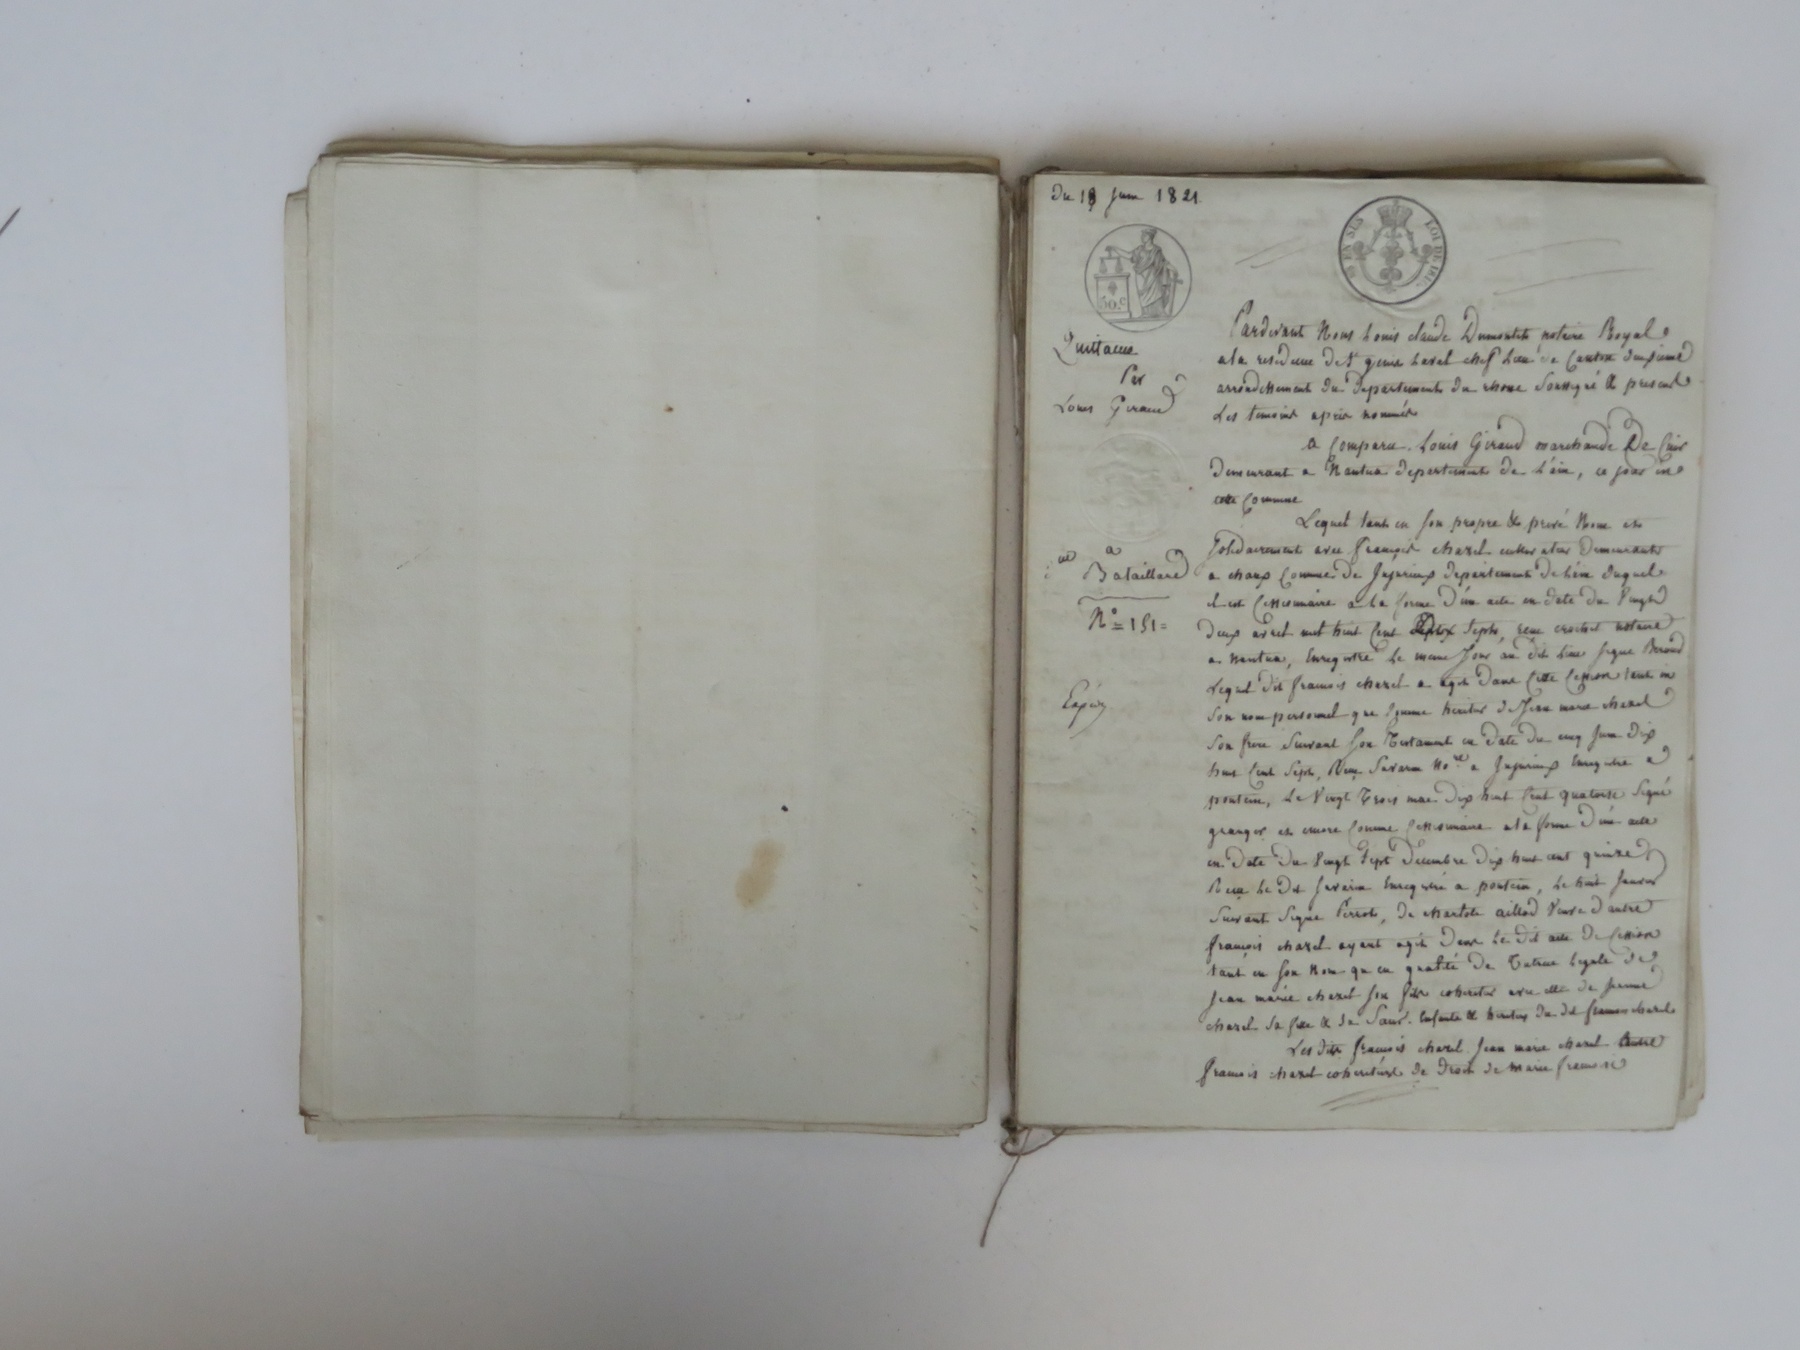 Du 19 juin 1821.
50.c
EN SES
ROI DE
Quittance
Par
Louis Giraud
a
Bataillard
N° = 151 =
Expée
Pardevant Nous Louis claude Dumontet notaire Royal
a la residence de St genis Laval chef Lieu de Canton deuxieme
arrondissement du Departement du rhone soussigné & present
Les temoins après nommés
A Comparu Louis Giraud marchand De Cuir
demeurant a Nantua departement de L'ain, ce jour en
cette Commune
Lequel tant en son propre & privé Nom et
solidairement avec françois chazel cultivateur demeurant
a chaux Commune de Jujurieux departement de L'ain duquel
il est Cessionnaire a La forme d'un acte en date du Vingt
deux avril mil huit Cent sept, reçu crochet notaire
a Nantua, Enregistré Le meme Jour au dit Lieu signé Beroud
Lequel dit francois chazel a agit dans Cette Cession tant en
son nom personnel que Comme heritier de Jean marie chazel
son frère suivant son Testament en date du cinq Juin dix
huit Cent Sept, Reçu Savarin No.re a Jujurieux Enregistré a
pontein, Le Vingt Trois mai dix huit Cent quatorze signé
granger et encore Comme Cessionnaire a la forme d'un acte
en date du Vingt Sept Decembre dix huit cent quinze
Reçu Le dit Savarin Enregistré a pontein, Le huit Janvier
suivant signé Perrot, de charlote aillod Veuve d'autre
françois chazel ayant agit dans Le dit acte de Cession
tant en son Nom qu'en qualité de Tutrice Legale de
Jean marie chazel son fils coheritier avec elle de jeanne
chazel sa fille & sa Sœur. Enfants & heritiers du dit francois chazel
Les dits francois chazel Jean marie chazel autre
francois chazel coheritiers de droit de marie francoise